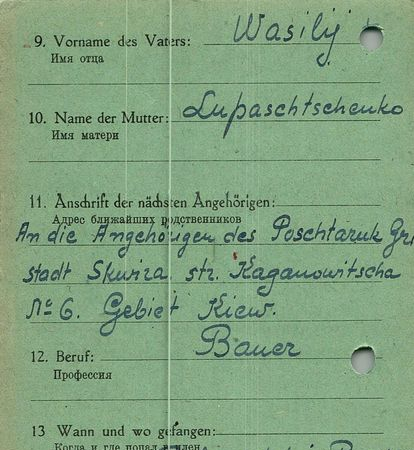 9. Vorname des Vaters: Wasilij
Имя отца
10. Name der Mutter: Lupaschtschenko
Имя матери
11. Anschrift der nächsten Angehörigen:
Адрес ближайших родственников
An die Angehörigen des Poschtaruk Gri
stadt Skwira str. Kaganowitscha
No 6. Gebiet Kiew.
12. Beruf: Bauer
Профессия
13 Wann und wo gefangen:
Когда и где попал в плен